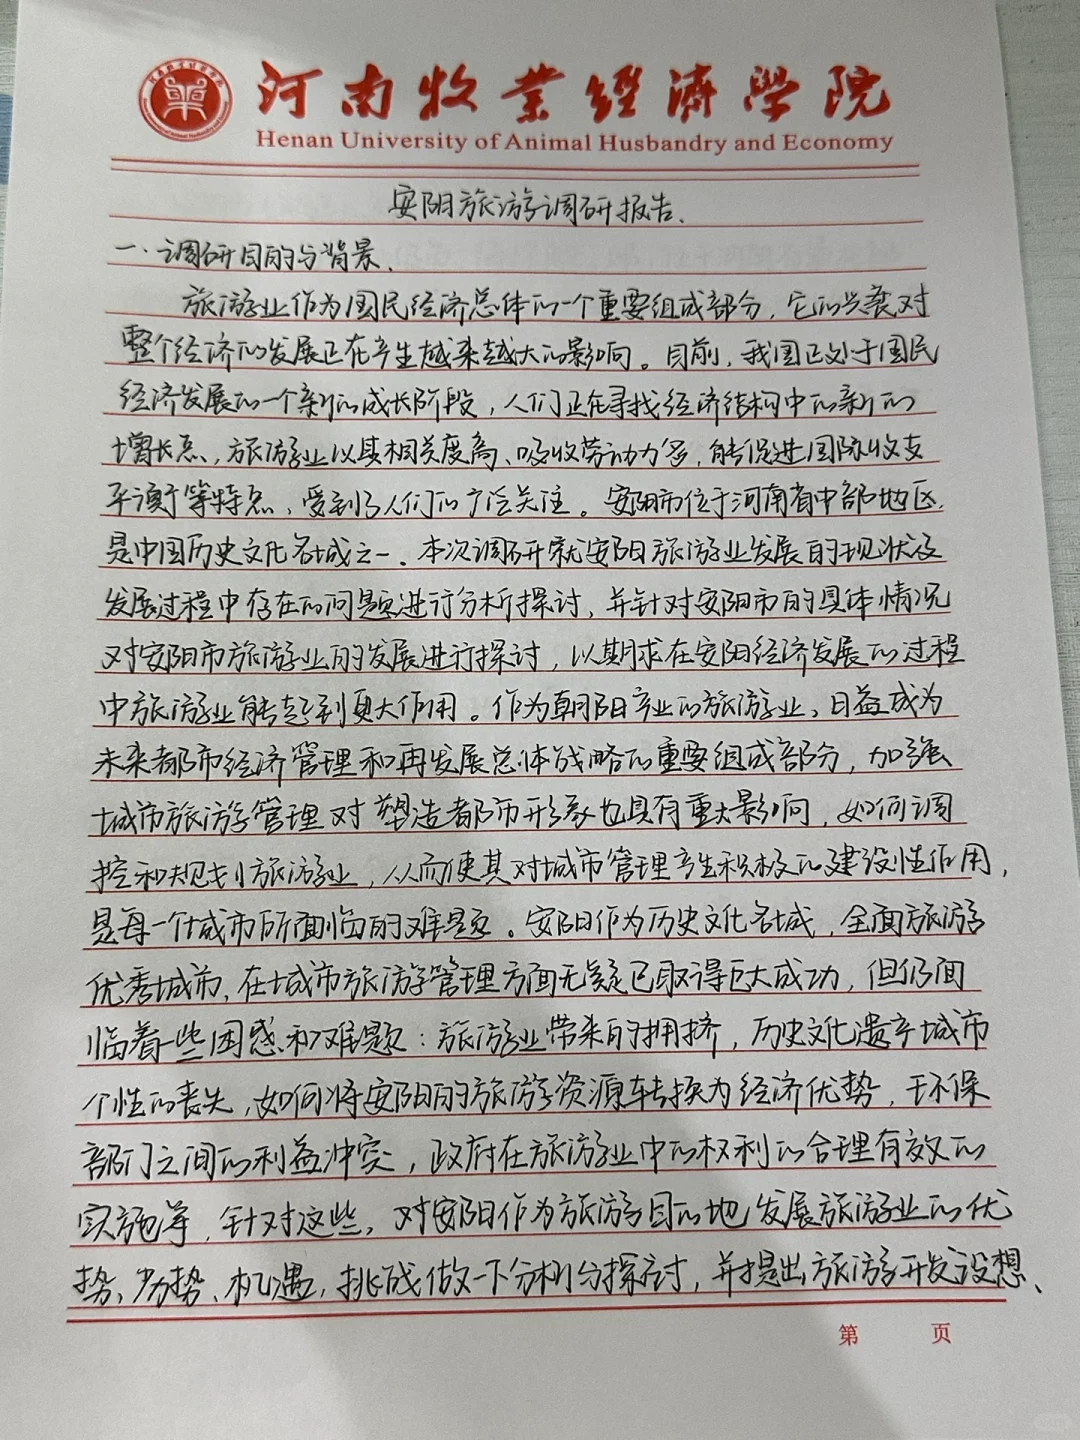 河南牧業經濟學院
Henan University of Animal Husbandry and Economy
安阳旅游调研报告、
一、调研目的与背景、
旅游业作为国民经济总体的一个重要组成部分，它的兴衰对
整个经济的发展正在产生越来越大的影响。目前，我国正处于国民
经济发展的一个新的成长阶段，人们正在寻找经济结构中的新的
增长点，旅游业以其相关度高、吸收劳动力多，能促进国际收支
平衡等特点，受到了人们的广泛关注。安阳市位于河南省中部地区，
是中国历史文化名城之一、本次调研就安阳旅游业发展的现状及
发展过程中存在的问题进行分析探讨，并针对安阳市的具体情况
对安阳市旅游业的发展进行探讨，以期求在安阳经济发展的过程
中旅游业能起到更大作用。作为朝阳产业的旅游业、日益成为
未来都市经济管理和再发展总体战略的重要组成部分，加强
城市旅游管理对塑造都市形象也具有重大影响，如何调
控和规划旅游业，从而使其对城市管理产生积极的建设性作用，
是每一个城市所面临的难题。安阳作为历史文化名城，全面旅游
优秀城市，在城市旅游管理方面无疑已取得巨大成功，但仍面
临着一些困惑和难题：旅游业带来的拥挤，历史文化遗产城市
个性的丧失，如何将安阳的旅游资源转换为经济优势，环保
部门之间的利益冲突，政府在旅游业中的权利的合理有效的
实施等，针对这些，对安阳作为旅游目的地发展旅游业的优
势、劣势、机遇，挑战做一下分析与探讨，并提出旅游开发设想、
第 页